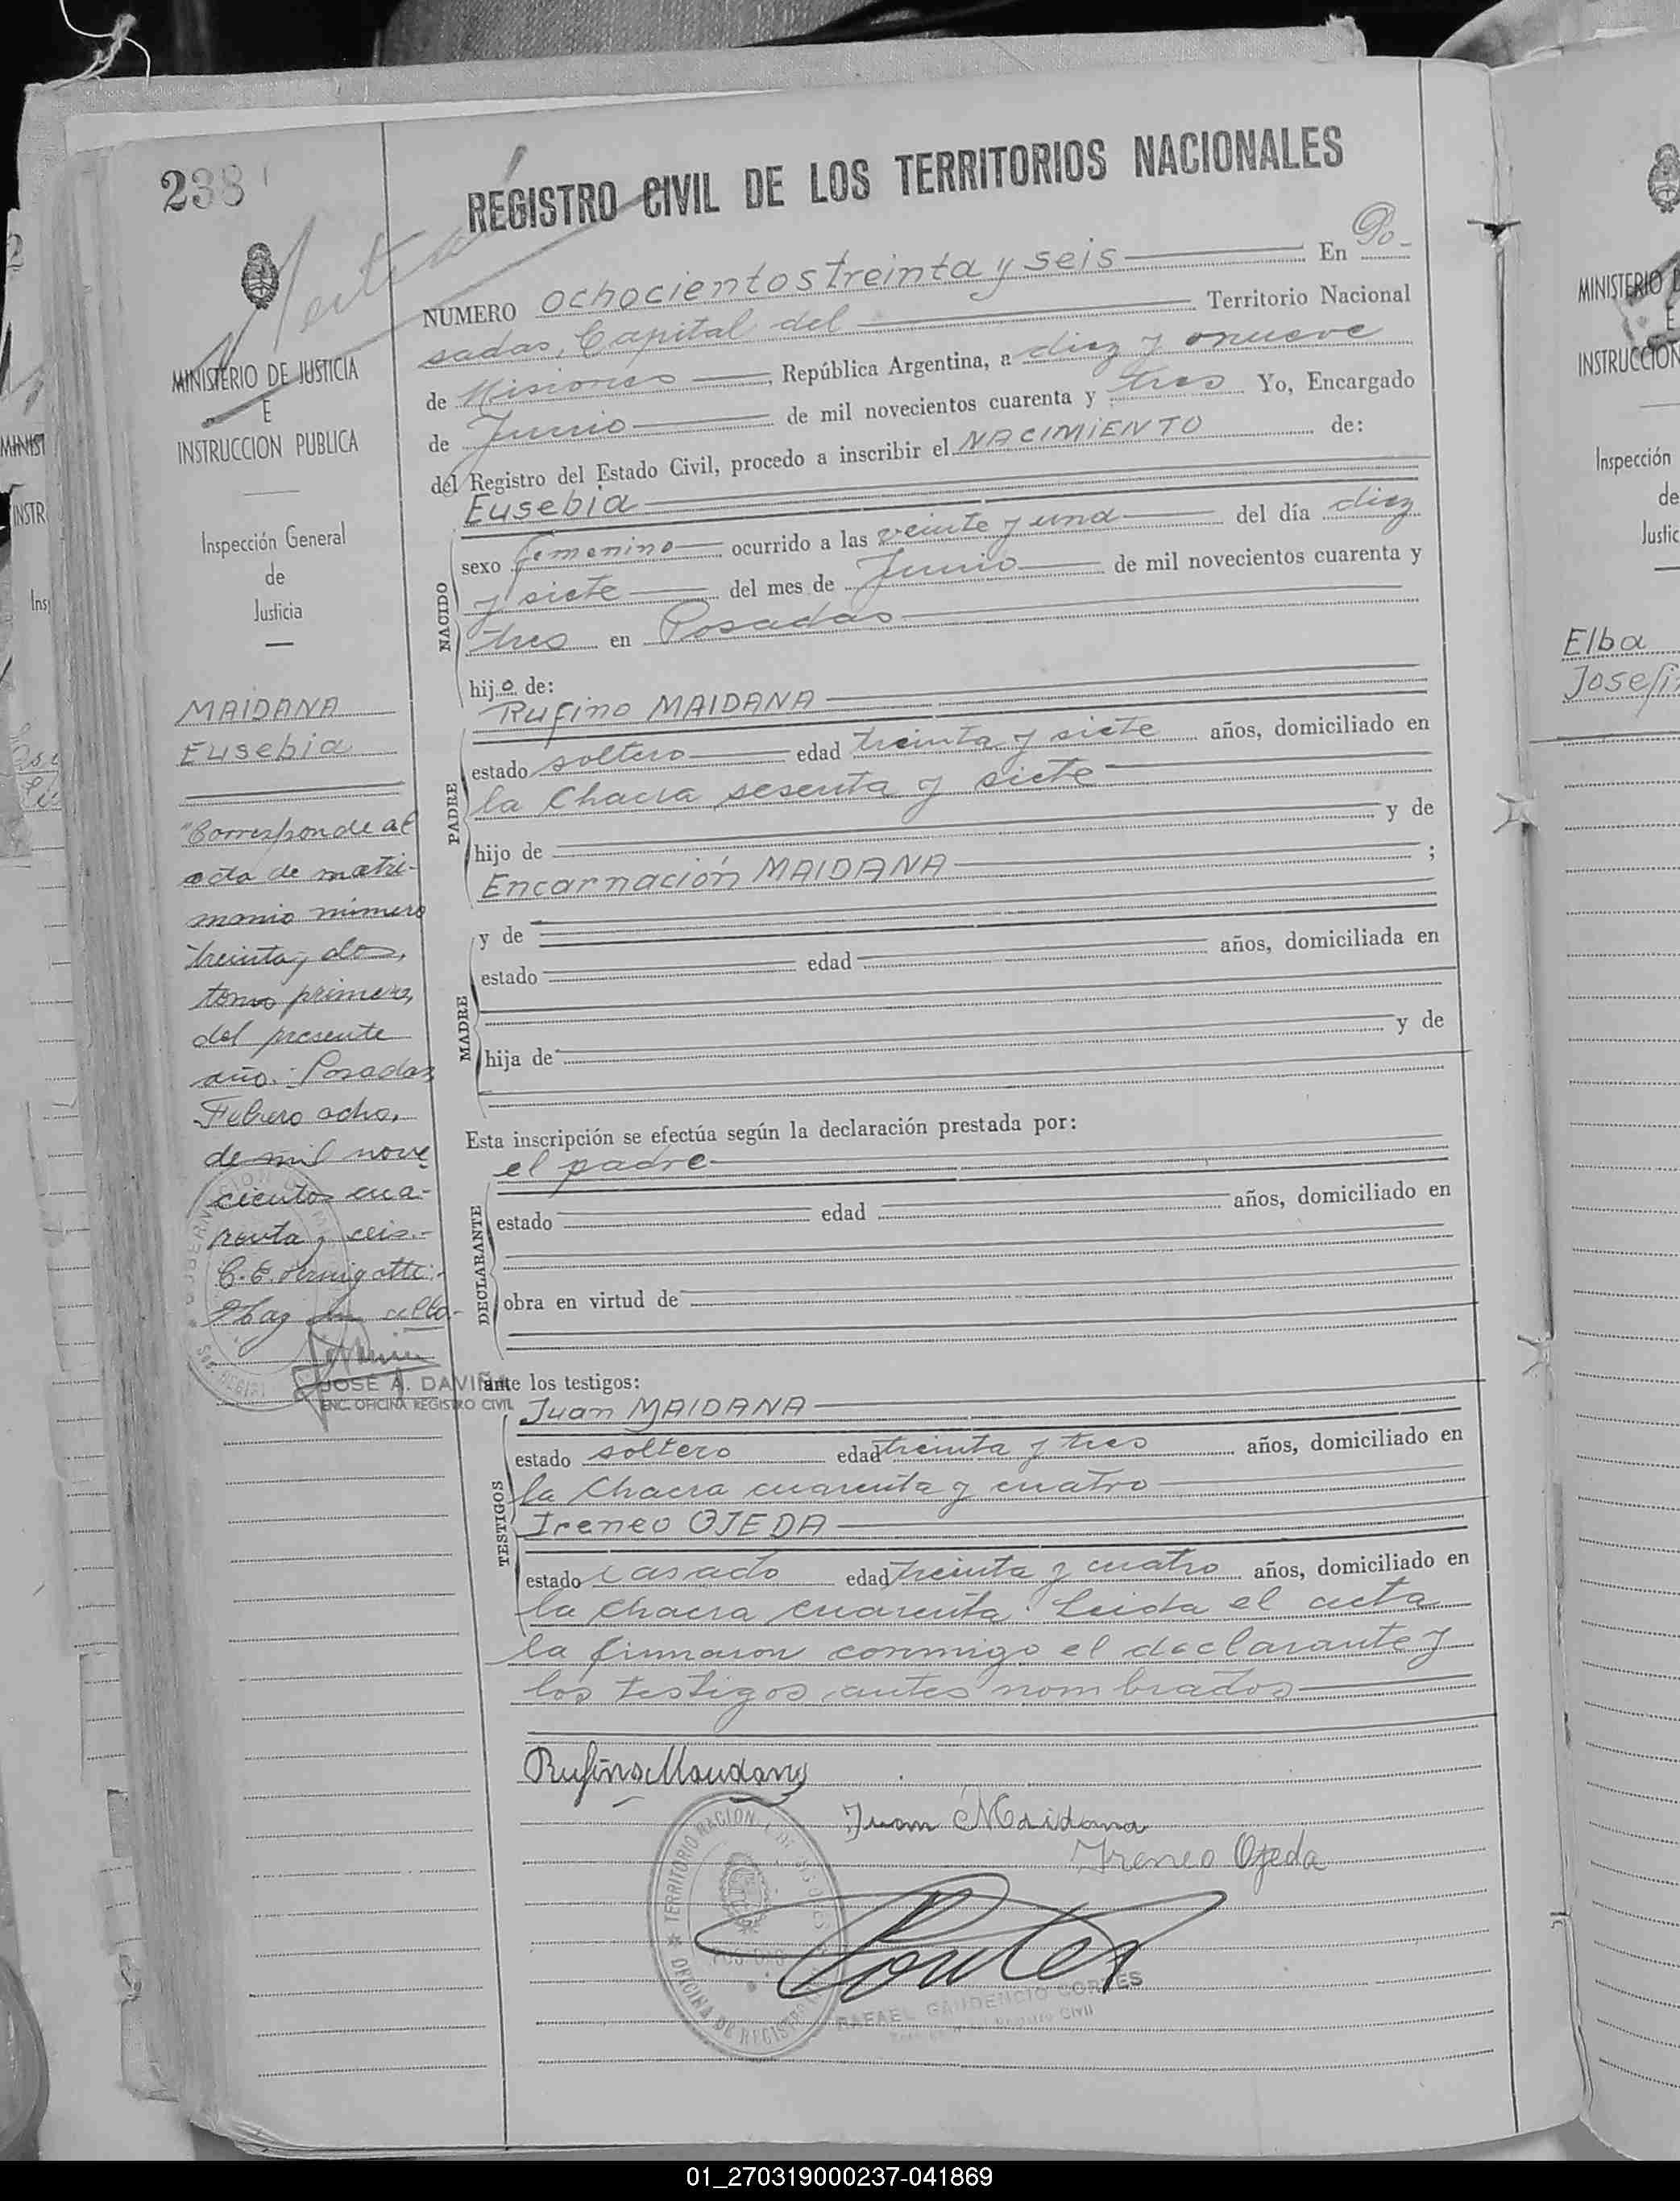 238
REGISTRO CIVIL DE LOS TERRITORIOS NACIONALES
NUMERO ochocientos treinta y seis En Po-
sadas, Capital del Territorio Nacional
de Misiones, República Argentina, a diez y nueve
de Junio de mil novecientos cuarenta y tres Yo, Encargado
del Registro del Estado Civil, procedo a inscribir el NACIMIENTO de:
Eusebia
NACIDO
sexo femenino ocurrido a las veinte y una del día diez
y siete del mes de Junio de mil novecientos cuarenta y
tres en Posadas
hijo de:
Rufino MAIDANA
PADRE
estado soltero edad treinta y siete años, domiciliado en
la Chacra sesenta y siete
hijo de y de
Encarnación MAIDANA ;
y de
MADRE
estado edad años, domiciliada en
hija de y de
Esta inscripción se efectúa según la declaración prestada por:
el padre
DECLARANTE
estado edad años, domiciliado en
obra en virtud de
ante los testigos:
Juan MAIDANA
TESTIGOS
estado soltero edad treinta y tres años, domiciliado en
la Chacra cuarenta y cuatro
Ireneo OJEDA
estado casado edad treinta y cuatro años, domiciliado en
la Chacra cuarenta. Leida el acta
la firmaron conmigo el declarante y
los testigos antes nombrados
Rufino Maudany
Juan Maidana
Ireneo Ojeda
Cortes
RAFAEL GAUDENCIO CORTES
TERRITORIO NACIONAL DE MISIONES
POSADAS
OFICINA DE REGISTRO
MINISTERIO DE JUSTICIA
E
INSTRUCCION PUBLICA
Inspección General
de
Justicia
MAIDANA
Eusebia
"Corresponde al
acta de matri-
monio número
treinta y dos,
tomo primero,
del presente
año.- Posadas,
Febrero ocho,
de mil nove
cientos cua-
renta y seis.-
Hay un sello-
JOSÉ A. DAVIÑA
ENC. OFICINA REGISTRO CIVIL
MINISTERIO D
E
INSTRUCCION
Inspección
de
Justic
Elba
Josefi
MINIST
INSTR
Ins
01_270319000237-041869